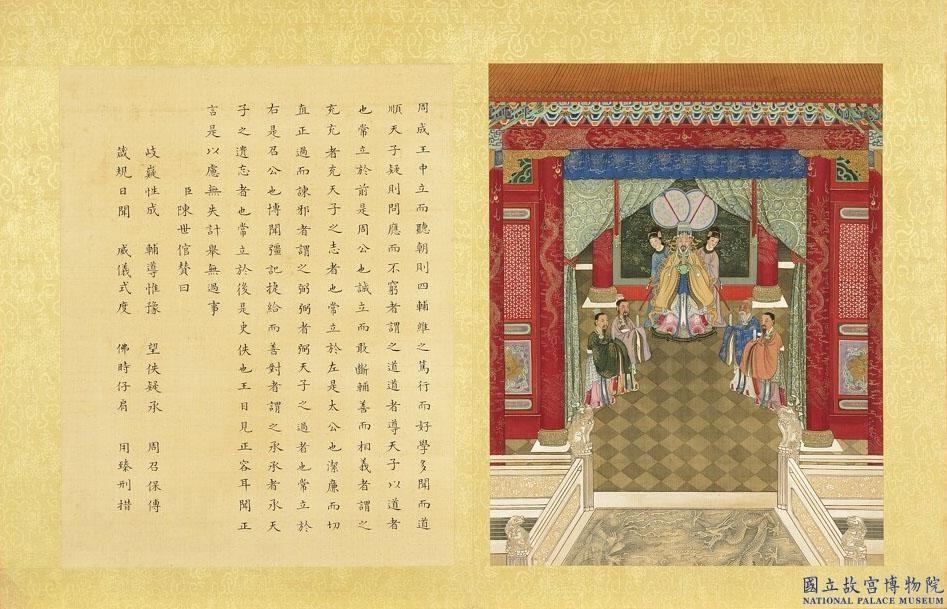 周成王中立而聽朝則四輔維之篤行而好學多聞而道
順天子疑則問應而不窮者謂之道道者導天子以道者
也常立於前是周公也誠立而敢斷輔善而相義者謂之
充充者充天子之志者也常立於左是太公也潔廉而切
直正過而諫邪者謂之弼弼者弼天子之過者也常立於
右是召公也博聞彊記捷給而善對者謂之承承者承天
子之遺忘者也常立於後是史佚也王日見正容耳聞正
言是以慮無失計舉無過事
臣陳世倌贊曰
岐嶷性成 輔導惟豫 望佚疑承 周召保傅
箴規日聞 威儀式度 佛時仔肩 用臻刑措
國立故宮博物院
NATIONAL PALACE MUSEUM